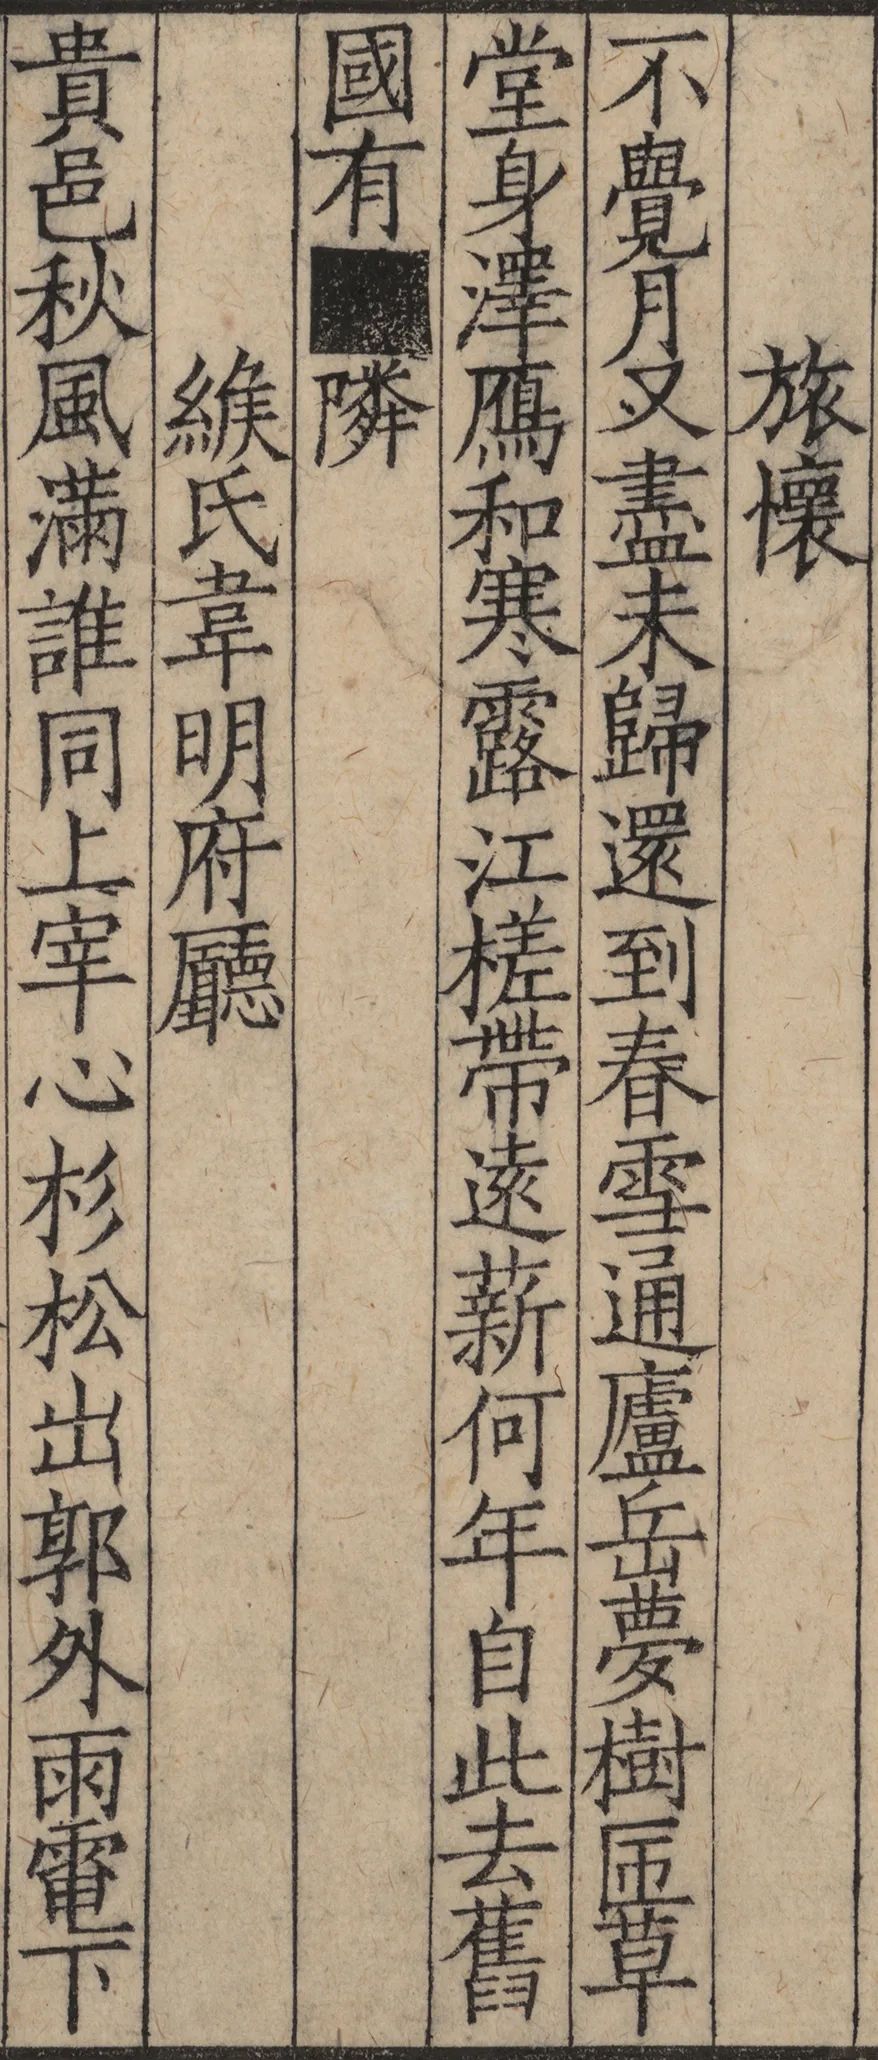 旅懷
不覺月又盡未歸還到春雪通廬岳夢樹匝草
堂身澤鴈和寒露江槎帶遠薪何年自此去舊
國有■隣
緱氏韋明府廳
貴邑秋風滿誰同上宰心杉松出郭外雨電下